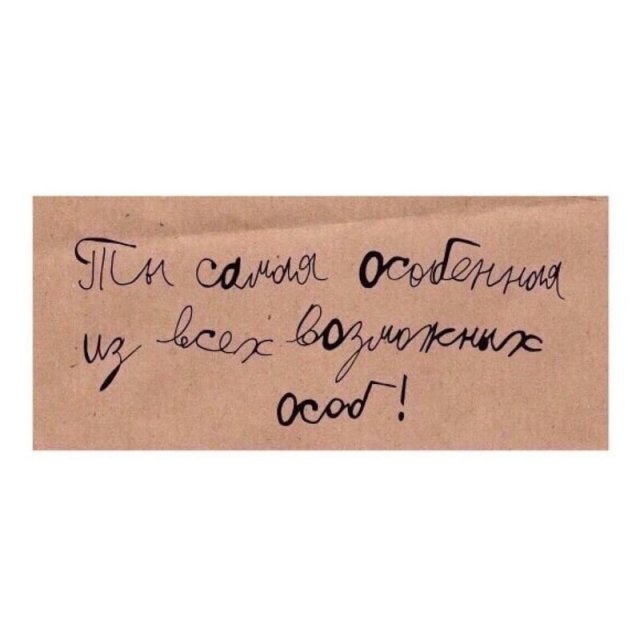 Ты самая особенная
из всех возможных
особ!